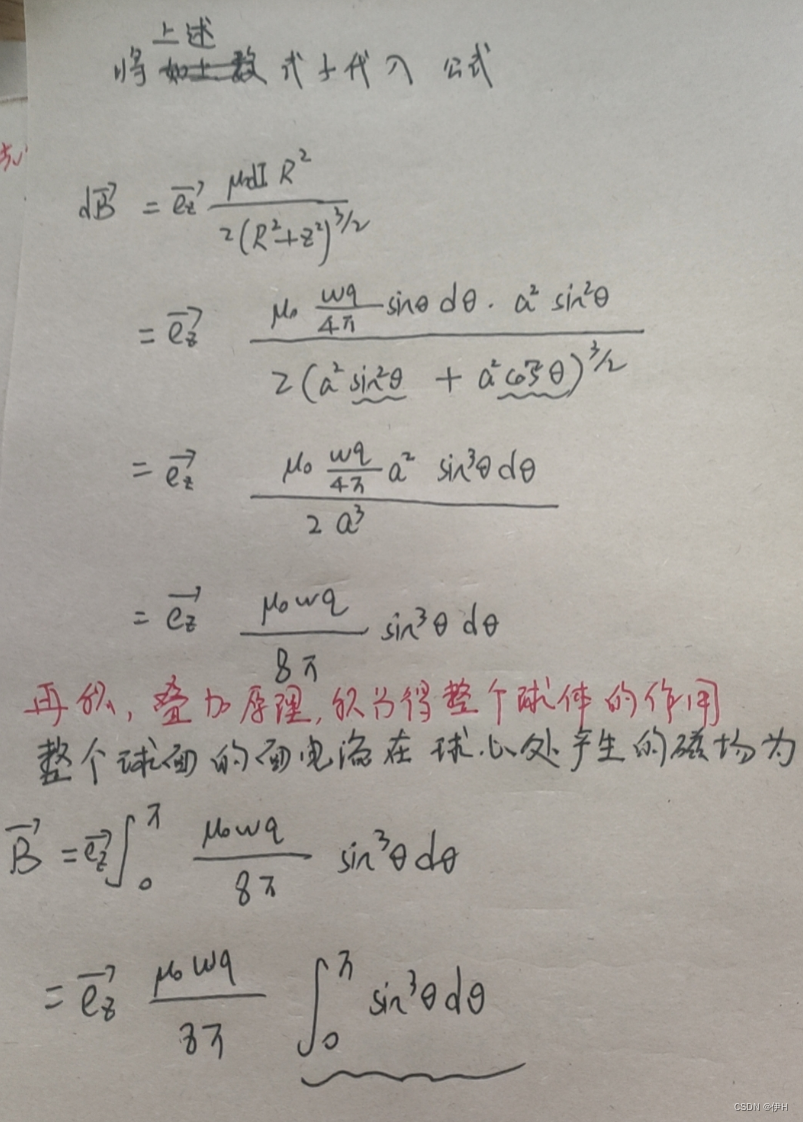 上述
将 式子代入 公式
d\vec{B} = \vec{e_z} \frac{μ_0 dI R^2}{2(R^2+z^2)^{3/2}}
= \vec{e_z} \frac{μ_0 \frac{ωq}{4π} sinθ dθ · a^2 sin^2θ}{2(a^2 sin^2θ + a^2 cos^2θ)^{3/2}}
= \vec{e_z} \frac{μ_0 \frac{ωq}{4π} a^2 sin^3θ dθ}{2a^3}
= \vec{e_z} \frac{μ_0 ωq}{8π} sin^3θ dθ
再 , 叠加原理, 积分得整个球体的作用
整个球面的面电流在球心处产生的磁场为
\vec{B} = \vec{e_z} \int_0^π \frac{μ_0 ωq}{8π} sin^3θ dθ
= \vec{e_z} \frac{μ_0 ωq}{8π} \int_0^π sin^3θ dθ
CSDN @伊H